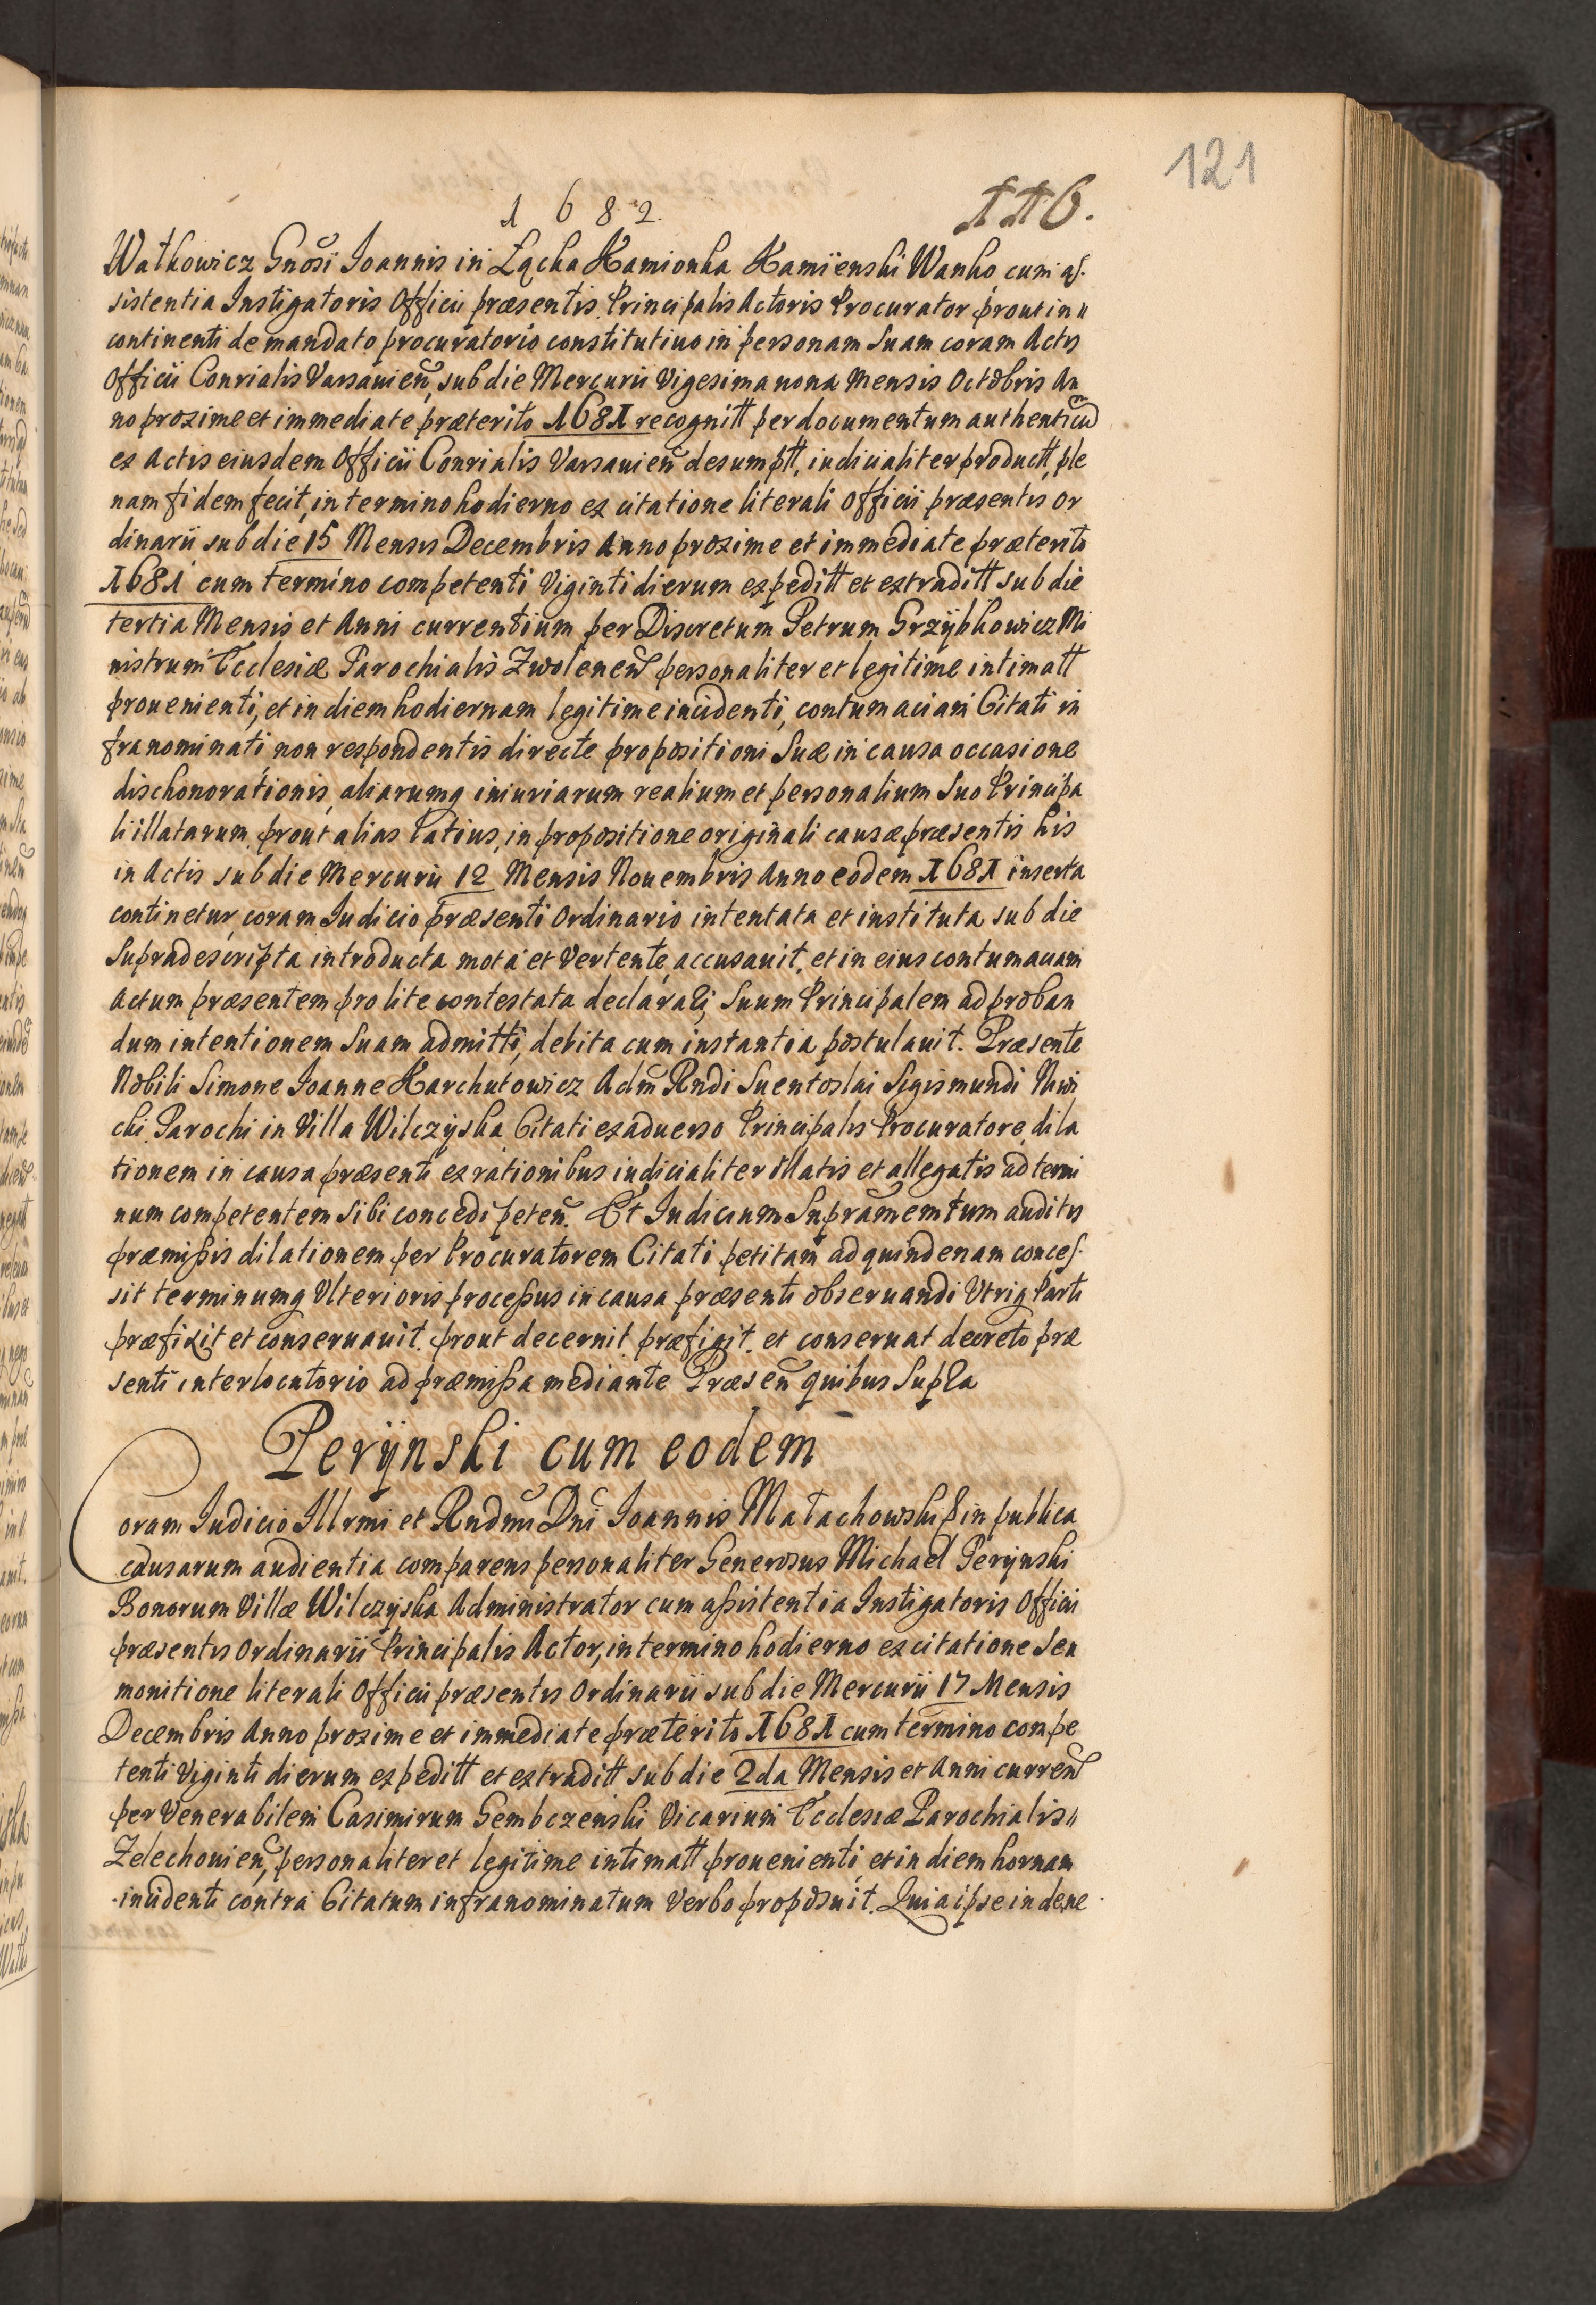 121
1682.
116.
Wałkowicz Gnosi Joannis in Łącka Kamionka Kamienski Wanko, cum as-
sistentia Instigatoris Officii præsentis Principalis Actoris Procurator prout in
continenti de mandato procuratorio constitutiuo in personam Suam coram Actis
Officii Consialis Varsauien, sub die Mercurii Vigesima nona Mensis Octobris An
no proxime et immediate præterito 1681 recognitt per documentum authenticu
ex Actis eiusdem Officii Consialis Varsauien desumptt, iudicialiter productt, ple
nam fidem fecit, in termino hodierno ex citatione literali Officii præsentis Or
dinarii sub die 15 Mensis Decembris Anno proxime et immediate præterito
1681 cum termino competenti Viginti dierum expeditt et extraditt sub die
tertia Mensis et Anni currentium per Discretum Petrum Grzybkowicz Mi
nistrum Ecclesiæ Parochialis Zwolenen personaliter et legitime intimatt
prouenienti, et in diem hodiernam legitime incidenti, contumaciam Citati in
franominati non respondentis directe propositioni Suæ in causa occasione
dischonorationis, aliarumq iniuriarum realium et personalium Suo Principa
li illatarum, prout alias latius, in propositione originali causæ præsentis his
in Actis sub die Mercurii 12 Mensis Nouembris Anno eodem 1681 inserta
continetur, coram Iudicio præsenti Ordinario intentata et instituta sub die
Supradescripta introducta mota et Vertente, accusauit, et in eius contumaciam
Actum præsentem pro lite contestata declarari, Suum Principalem ad proban
dum intentionem Suam admitti, debita cum instantia postulauit. Præsente
Nobili Simone Ioanne Karchutowicz Adm Rndi Suentoslai Sigismundi
Parochi in Villa Wilczyska Citati ex aduerso Principalis Procuratore, dila
tionem in causa præsenti ex rationibus iudicialiter illatis et allegatis ad termi
num competentem Sibi concedi peten. Et Iudicium Supramemtum auditis
præmissis dilationem per Procuratorem Citati petitam ad quindenam conces-
sit terminumq Ulterioris processus in causa præsenti obseruandi Utriq Parti
præfixit et conseruauit. prout decernit præfigit. et conseruat decreto præ
senti interlocutorio ad præmissa mediante Præsen quibus Supra
Perynski cum eodem
Coram Iudicio Illrmi et Rndmi Dni Ioannis Małachowski in publica
causarum audientia comparens personaliter Generosus Michael Perynski
Bonorum Villæ Wilczyska Administrator cum assistentia Instigatoris Officii
præsentis Ordinarii Principalis Actor, in termino hodierno ex citatione seu
monitione literali Officii præsentis Ordinarii sub die Mercurii 17 Mensis
Decembris Anno proxime et immediate præterito 1681 cum termino compe
tenti Viginti dierum expeditt et extraditt sub die 2da Mensis et Anni curren
per Venerabilem Casimirum Gembczenski Vicarium Ecclesiæ Parochialis
Zelechouien, personaliter et legitime intimatt prouenienti, et in diem hornam
incidenti contra Citatum infranominatum Verbo proposuit. Quia ipse in dene